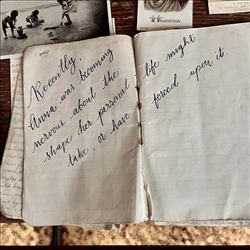 Recently,
Anna was becoming
nervous about the
shape her personal
take, or have
life might
forced upon it